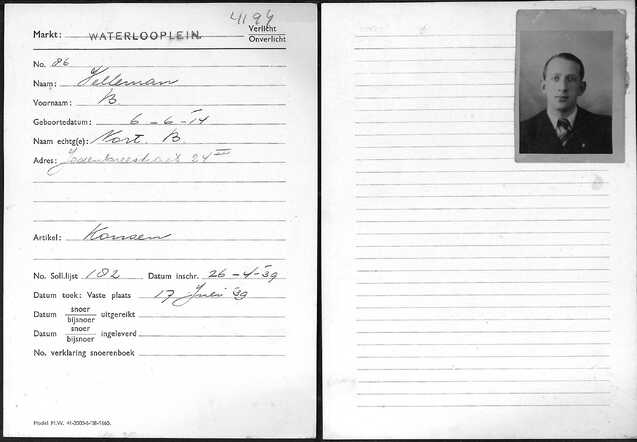 4194
Markt: WATERLOOPLEIN. Verlicht
Onverlicht
No. 86
Naam: Velleman
Voornaam: B
Geboortedatum: 6-6-'14
Naam echtg(e): Nort. B.
Adres: Jodenbreestraat 24 III
Artikel:
No. Soll.lijst 182 Datum inschr. 26-4-'39
Datum toek: Vaste plaats 17 Juli '39
Datum snoer
bijsnoer uitgereikt
Datum snoer
bijsnoer ingeleverd
No. verklaring snoerenboek